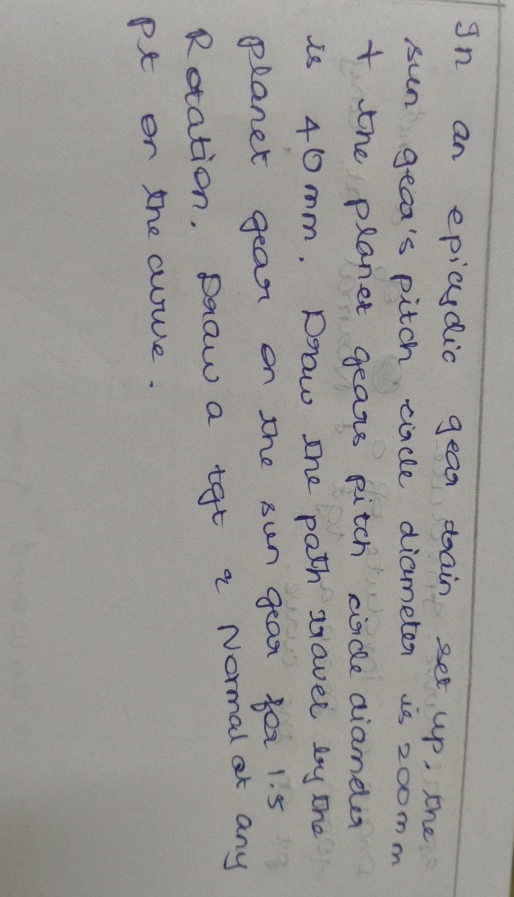 In an epicyclic gear train set up, the
sun gear's pitch circle diameter is 200mm
+ the planet gears pitch circle diameter
is 40mm. Draw the path travel by the
planet gear on the sun gear for 1.5
Rotation. Draw a tgt & Normal at any
pt on the curve.